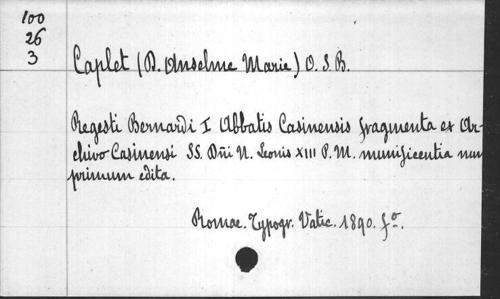 100
26
3
Caplet (D. Anselme Marie) O. S. B.
Regesti Bernardi I Abbatis Casinensis fragmenta ex Ar-
chivo Casinensi SS. Dñi N. Leonis XIII P. M. munificentia nunc
primum edita.
Romae. Typogr. Vatic. 1890. fo.